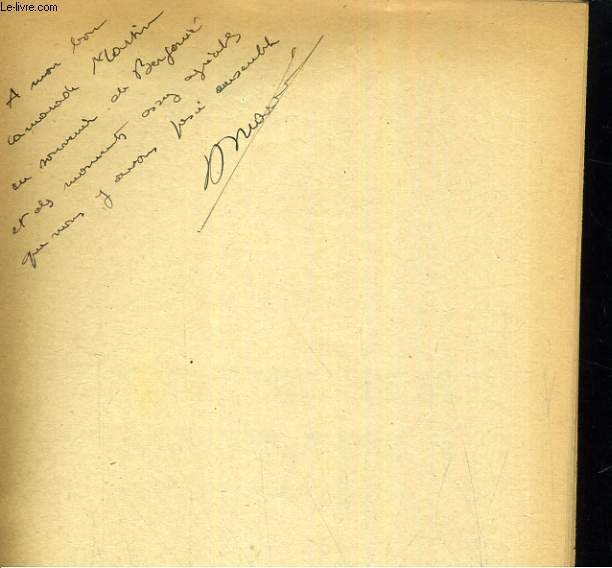 Le-livre.com
A mon bon
camarade Martin
en souvenir de
et des moments assez agréables
que nous y avons passé ensemble